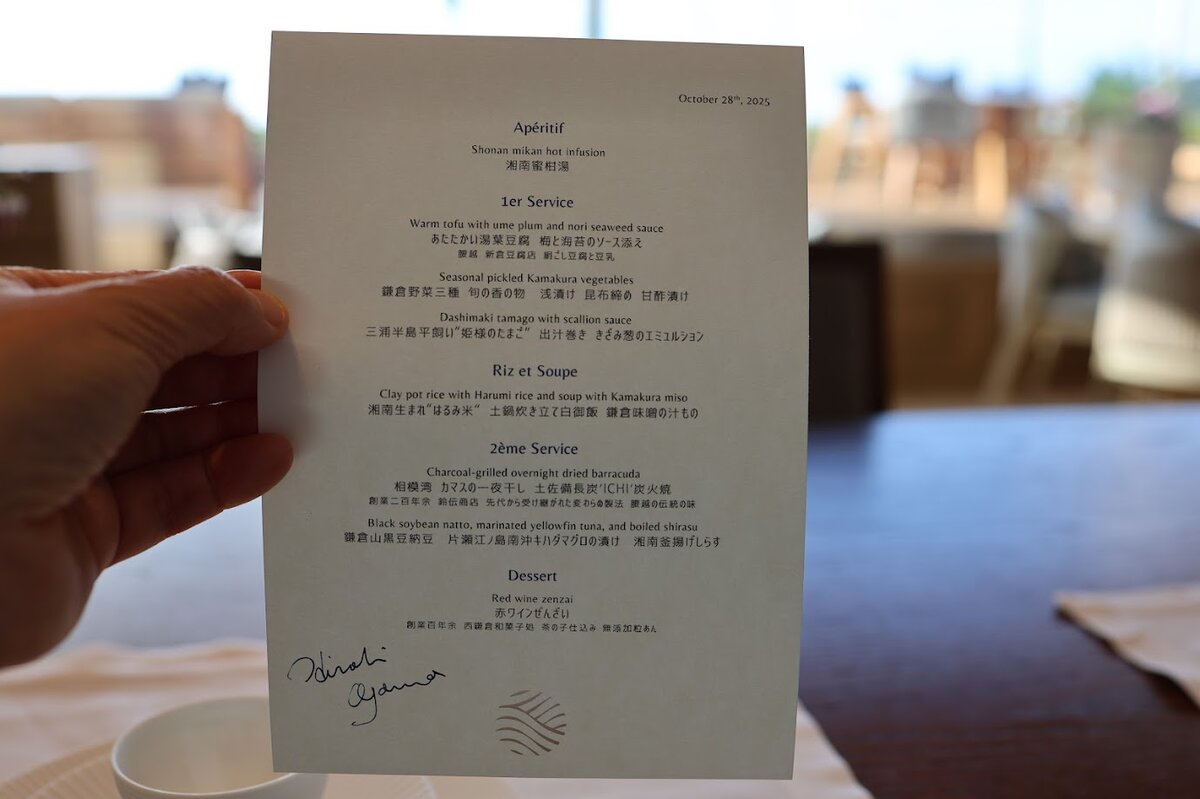 October 28th, 2025
Apéritif
Shonan mikan hot infusion
湘南蜜柑湯
1er Service
Warm tofu with ume plum and nori seaweed sauce
あたたかい湯葉豆腐 梅と海苔のソース添え
腰越 新倉豆腐店 絹ごし豆腐と豆乳
Seasonal pickled Kamakura vegetables
鎌倉野菜三種 旬の香の物 浅漬け 昆布締め 甘酢漬け
Dashimaki tamago with scallion sauce
三浦半島平飼い"姫様のたまご" 出汁巻き きざみ葱のエミュルション
Riz et Soupe
Clay pot rice with Harumi rice and soup with Kamakura miso
湘南生まれ"はるみ米" 土鍋炊き立て白御飯 鎌倉味噌の汁もの
2ème Service
Charcoal-grilled overnight dried barracuda
相模湾 カマスの一夜干し 土佐備長炭'ICHI'炭火焼
創業二百年余 鈴伝商店 先代から受け継がれた変わらぬ製法 腰越の伝統の味
Black soybean natto, marinated yellowfin tuna, and boiled shirasu
鎌倉山黒豆納豆 片瀬江ノ島南沖キハダマグロの漬け 湘南釜揚げしらす
Dessert
Red wine zenzai
赤ワインぜんざい
創業百年余 西鎌倉和菓子処 茶の子仕込み 無添加粒あん